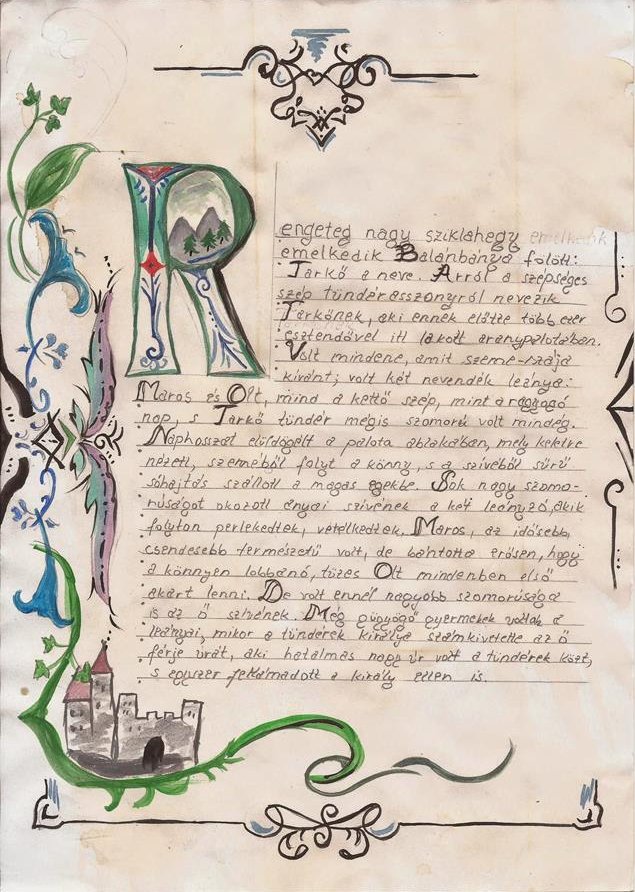 Rengeteg nagy sziklahegy emelkedik
emelkedik Balánbánya fölött:
Tarkő a neve. Arról a szépséges
szép tündérasszonyról nevezik
Tarkőnek, aki ennek előtte több ezer
esztendővel itt lakott aranypalotában.
Volt mindene, amit szeme-szája
kívánt; volt két nevendék leánya:
Maros és Olt, mind a kettő szép, mint a ragyogó
nap, s Tarkő tündér mégis szomorú volt mindég.
Naphosszat elüldögélt a palota ablakában, mely keletre
nézett, szeméből folyt a könny, s a szívéből sűrű
sóhajtás szállott a magas egekbe. Sok nagy szomo-
rúságot okozott anyai szívének a két leányzó, akik
folyton perlekedtek, vetélkedtek. Maros, az idősebb,
csendesebb természetű volt, de bántotta erősen, hogy
a könnyen lobbanó, tüzes Olt mindenben első
akart lenni. De volt ennél nagyobb szomorúsága
is az ő szívének. Még gügyögő gyermekek voltak a
leányai, mikor a tündérek királya számkivetette az ő
férje urát, aki hatalmas nagy úr volt a tündérek közt,
s egyszer feltámadott a király ellen is